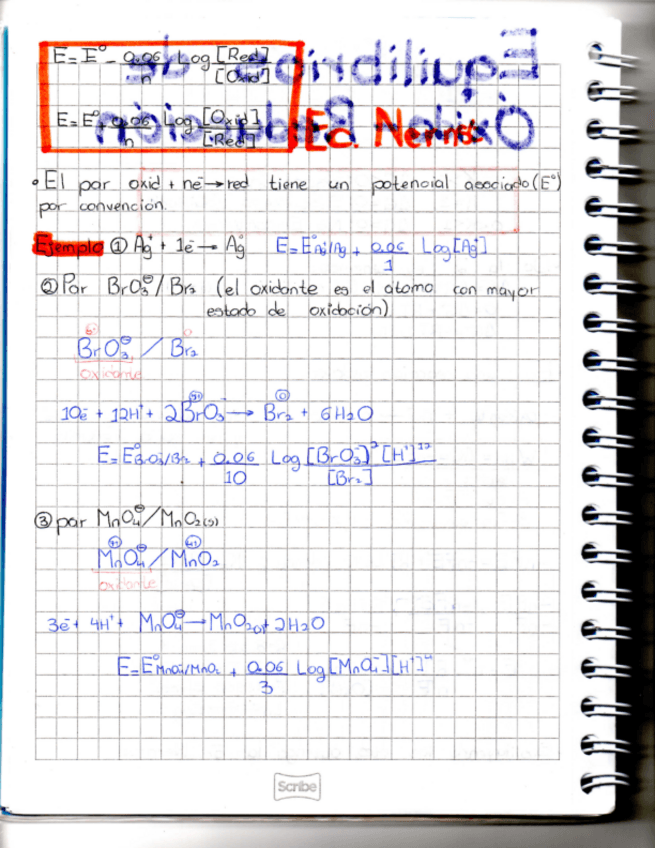 E = E° - 0.06/n Log [Red]/[Oxid]
E = E° + 0.06/n Log [Oxid]/[Red]
Ec. Nernst
• El par oxid + ne⁻ → red tiene un potencial asociado (E°)
por convención.
Ejemplo ① Ag⁺ + 1e⁻ → Ag° E = E°Ag⁺/Ag + 0.06/1 Log [Ag⁺]
② Par BrO₃⁻ / Br₂ (el oxidante es el átomo con mayor
estado de oxidación)
BrO₃⁻ / Br₂
oxidante
10e⁻ + 12H⁺ + 2BrO₃⁻ → Br₂ + 6H₂O
E = E°BrO₃⁻/Br₂ + 0.06/10 Log [BrO₃⁻]² [H⁺]¹² / [Br₂]
③ par MnO₄⁻ / MnO₂(s)
MnO₄⁻ / MnO₂
oxidante
3e⁻ + 4H⁺ + MnO₄⁻ → MnO₂(s) + 2H₂O
E = E°MnO₄⁻/MnO₂ + 0.06/3 Log [MnO₄⁻][H⁺]⁴
Scribe